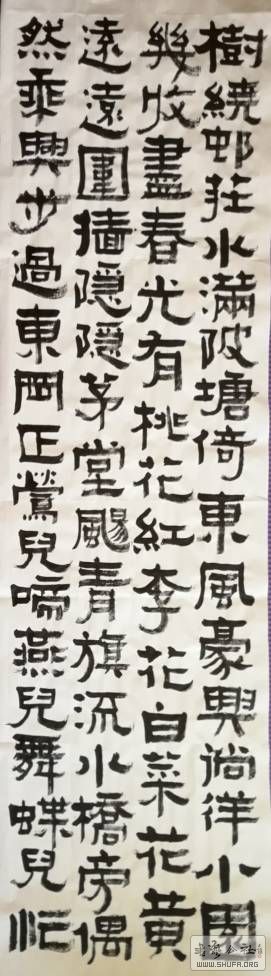 樹繞邨莊水滿陂塘倚東風豪興徜徉小園
幾收盡春光有桃花紅李花白菜花黃
遠遠圍墻隱隱茅堂颺青旗流水橋旁偶
然乘興步過東岡正鶯兒啼燕兒舞蝶兒忙
书法公社
WWW.SHUFA.ORG